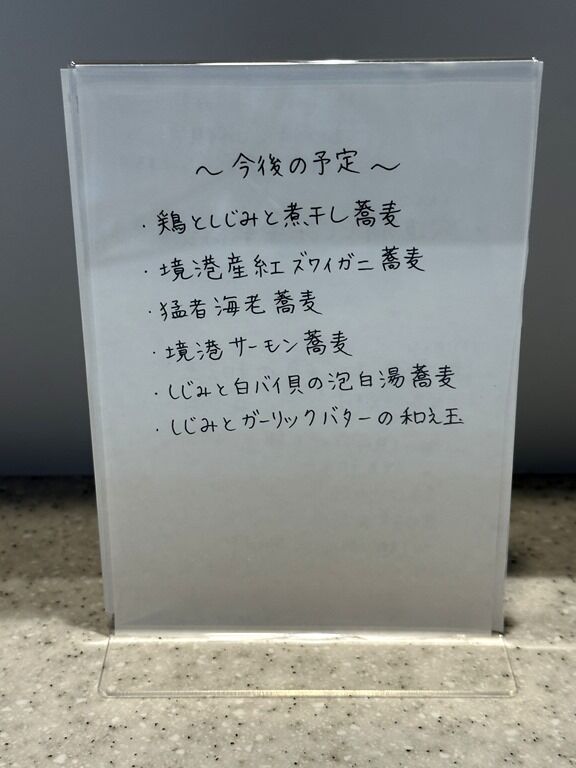 ～今後の予定～
・鶏としじみと煮干し蕎麦
・境港産紅ズワイガニ蕎麦
・猛者海老蕎麦
・境港サーモン蕎麦
・しじみと白バイ貝の泡白湯蕎麦
・しじみとガーリックバターの和え玉